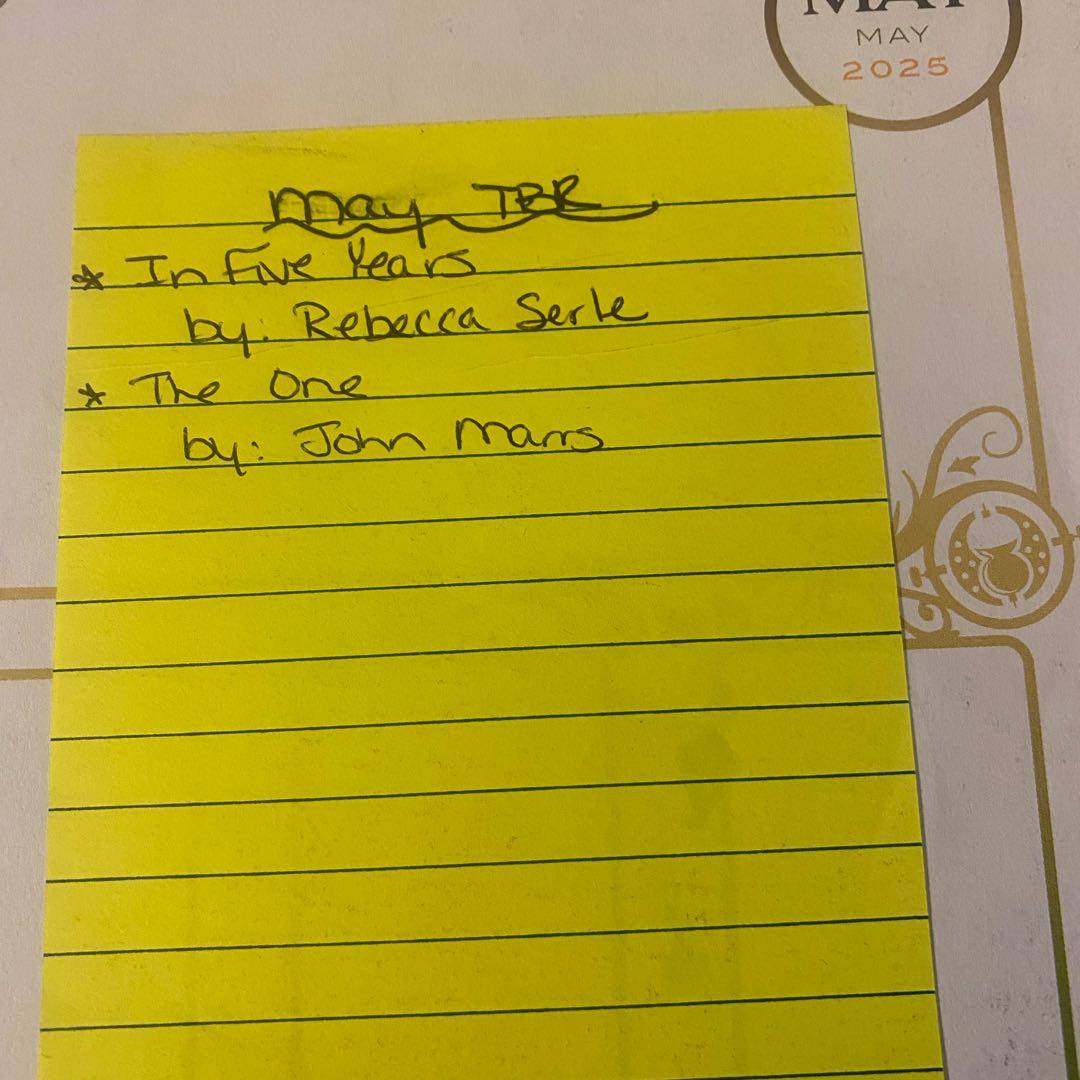 MAY
MAY
2025
May TBR
* In Five Years
by: Rebecca Serle
* The One
by: John Marrs